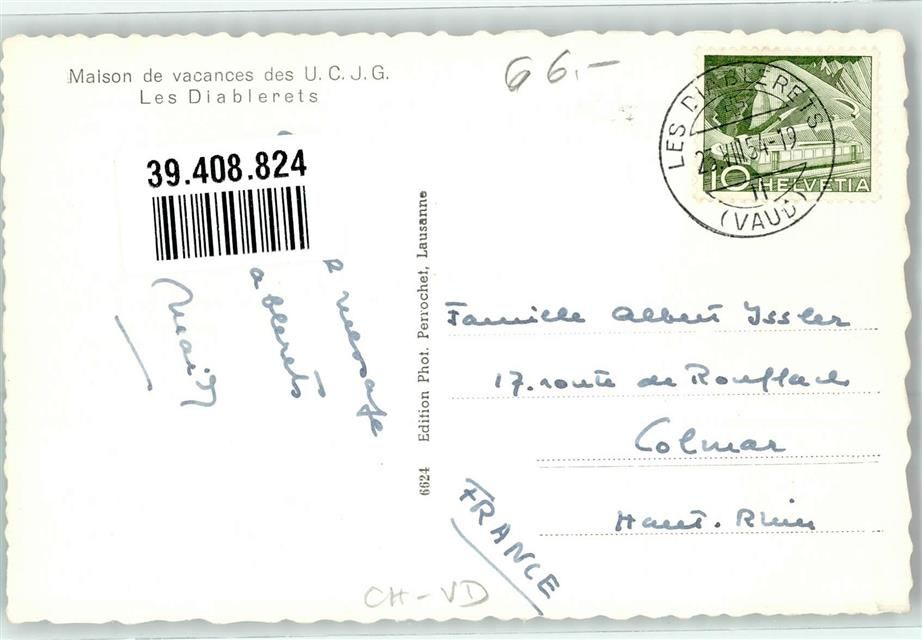 Maison de vacances des U. C. J. G.
Les Diablerets
66.-
39.408.824
message
ablerets
LES DIABLERETS
VIII 54-19
(VAUD)
10 HELVETIA
6624 Edition Phot. Perrochet, Lausanne
Famille Albert Issler
17. route de Rouffach
Colmar
Haut-Rhin
FRANCE
CH-VD